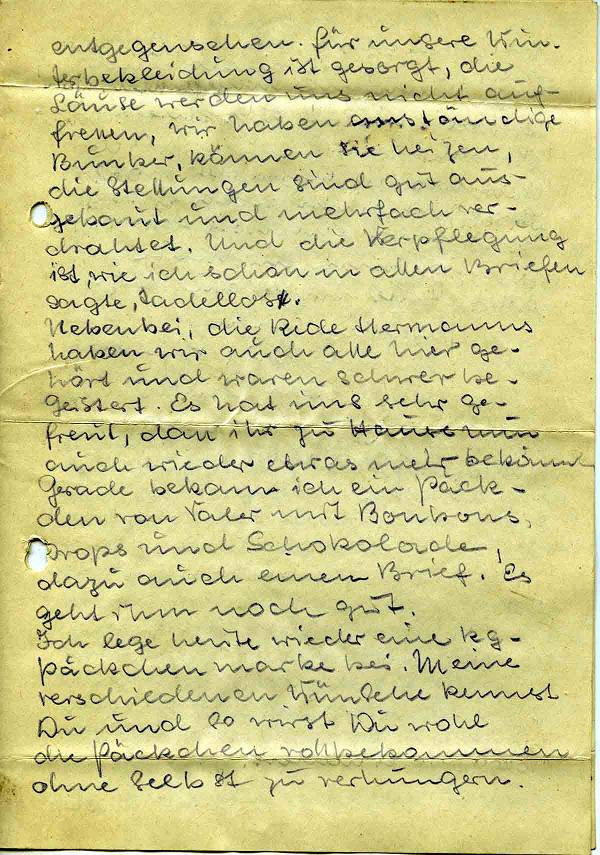 entgegensehen. Für unsere Win-
terbekleidung ist gesorgt, die
Läuse werden uns nicht auf-
fressen, wir haben anständige
Bunker, können sie heizen,
die Stellungen sind gut aus-
gebaut und mehrfach ver-
drahtet. Und die Verpflegung
ist, wie ich schon in allen Briefen
sagte, tadellos.
Nebenbei, die Rede Hermanns
haben wir auch alle hier ge-
hört und waren schwer be-
geistert. Es hat uns sehr ge-
freut, daß ihr zu Hause nun
auch wieder etwas mehr bekommt
Gerade bekam ich ein Päck-
chen von Vater mit Bonbons,
Drops und Schokolade,
dazu auch einen Brief. Es
geht ihm noch gut.
Ich lege heute wieder eine kg-
Päckchenmarke bei. Meine
verschiedenen Wünsche kennst
Du und so wirst Du wohl
die Päckchen vollbekommen
ohne selbst zu verhungern.